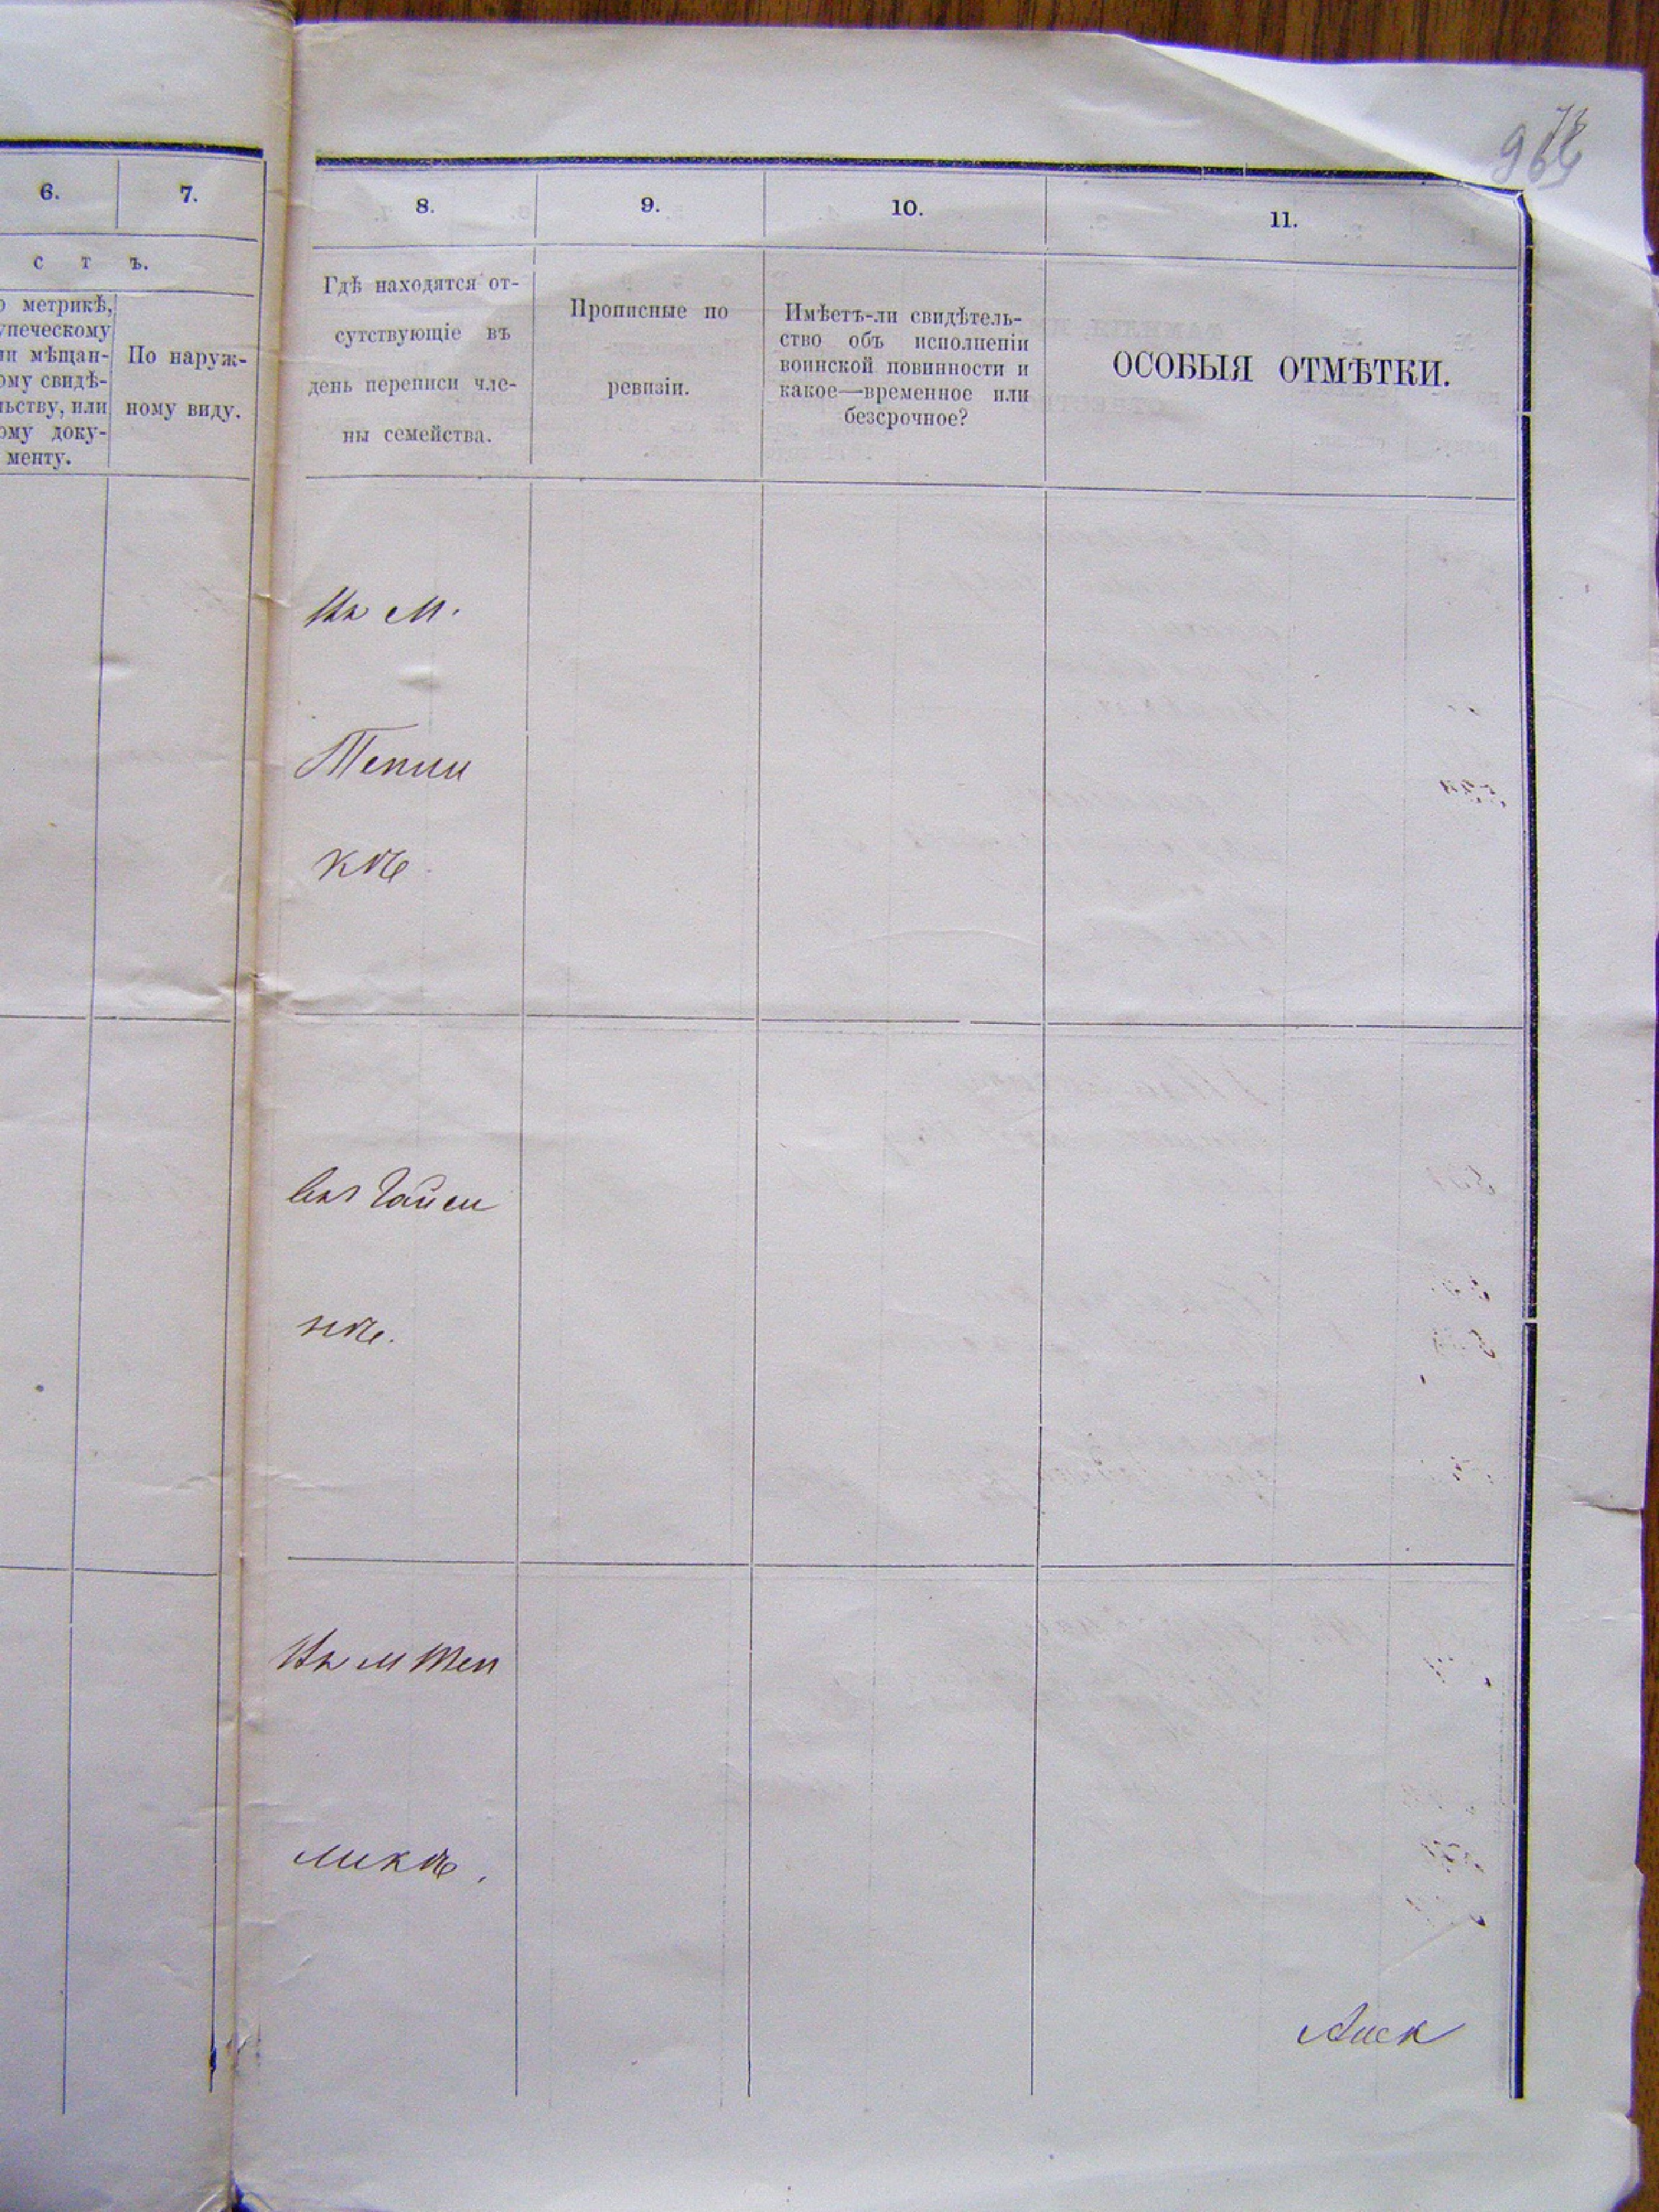 6.
7.
8.
9.
10.
11.
с т ъ.
метрикѣ,
упеческому
ли мѣщан-
ому свидѣ-
льству, или
ому доку-
менту.
По наруж-
ному виду.
Гдѣ находятся от-
сутствующіе въ
день переписи чле-
ны семейства.
Прописные по
ревизіи.
Имѣетъ-ли свидѣтель-
ство объ исполненіи
воинской повинности и
какое—временное или
безсрочное?
ОСОБЫЯ ОТМѢТКИ.
Въ М.
Тепли
кѣ
Гайси
нѣ.
Въ м Теп
ликѣ.